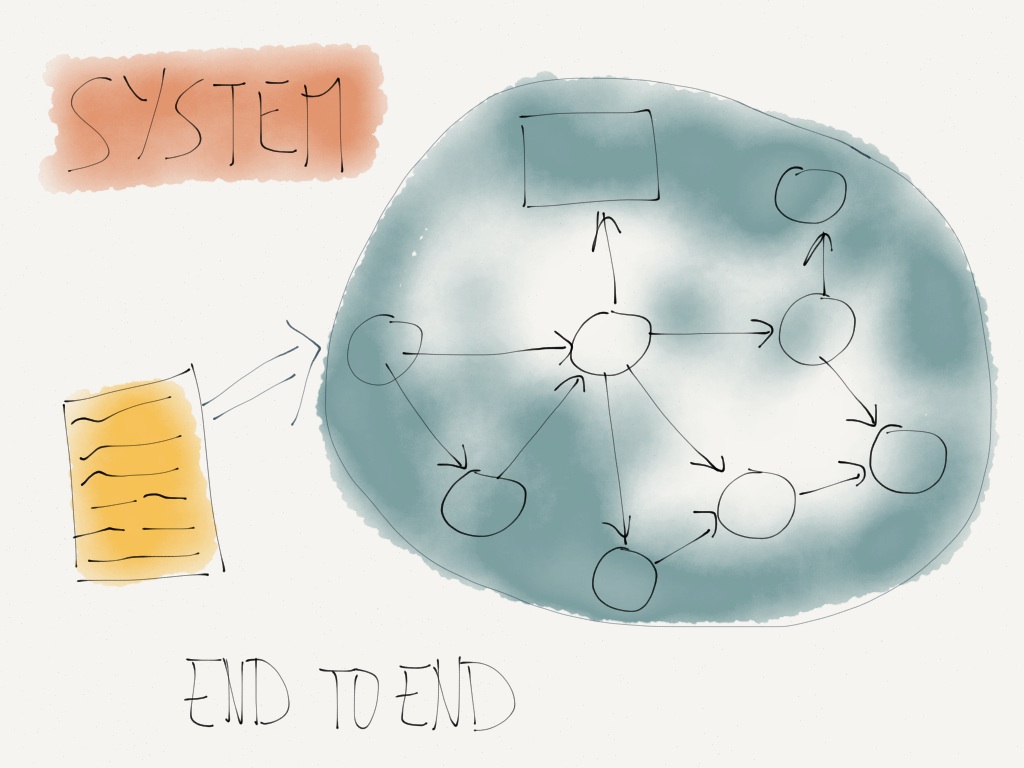 SYSTEM
END TO END